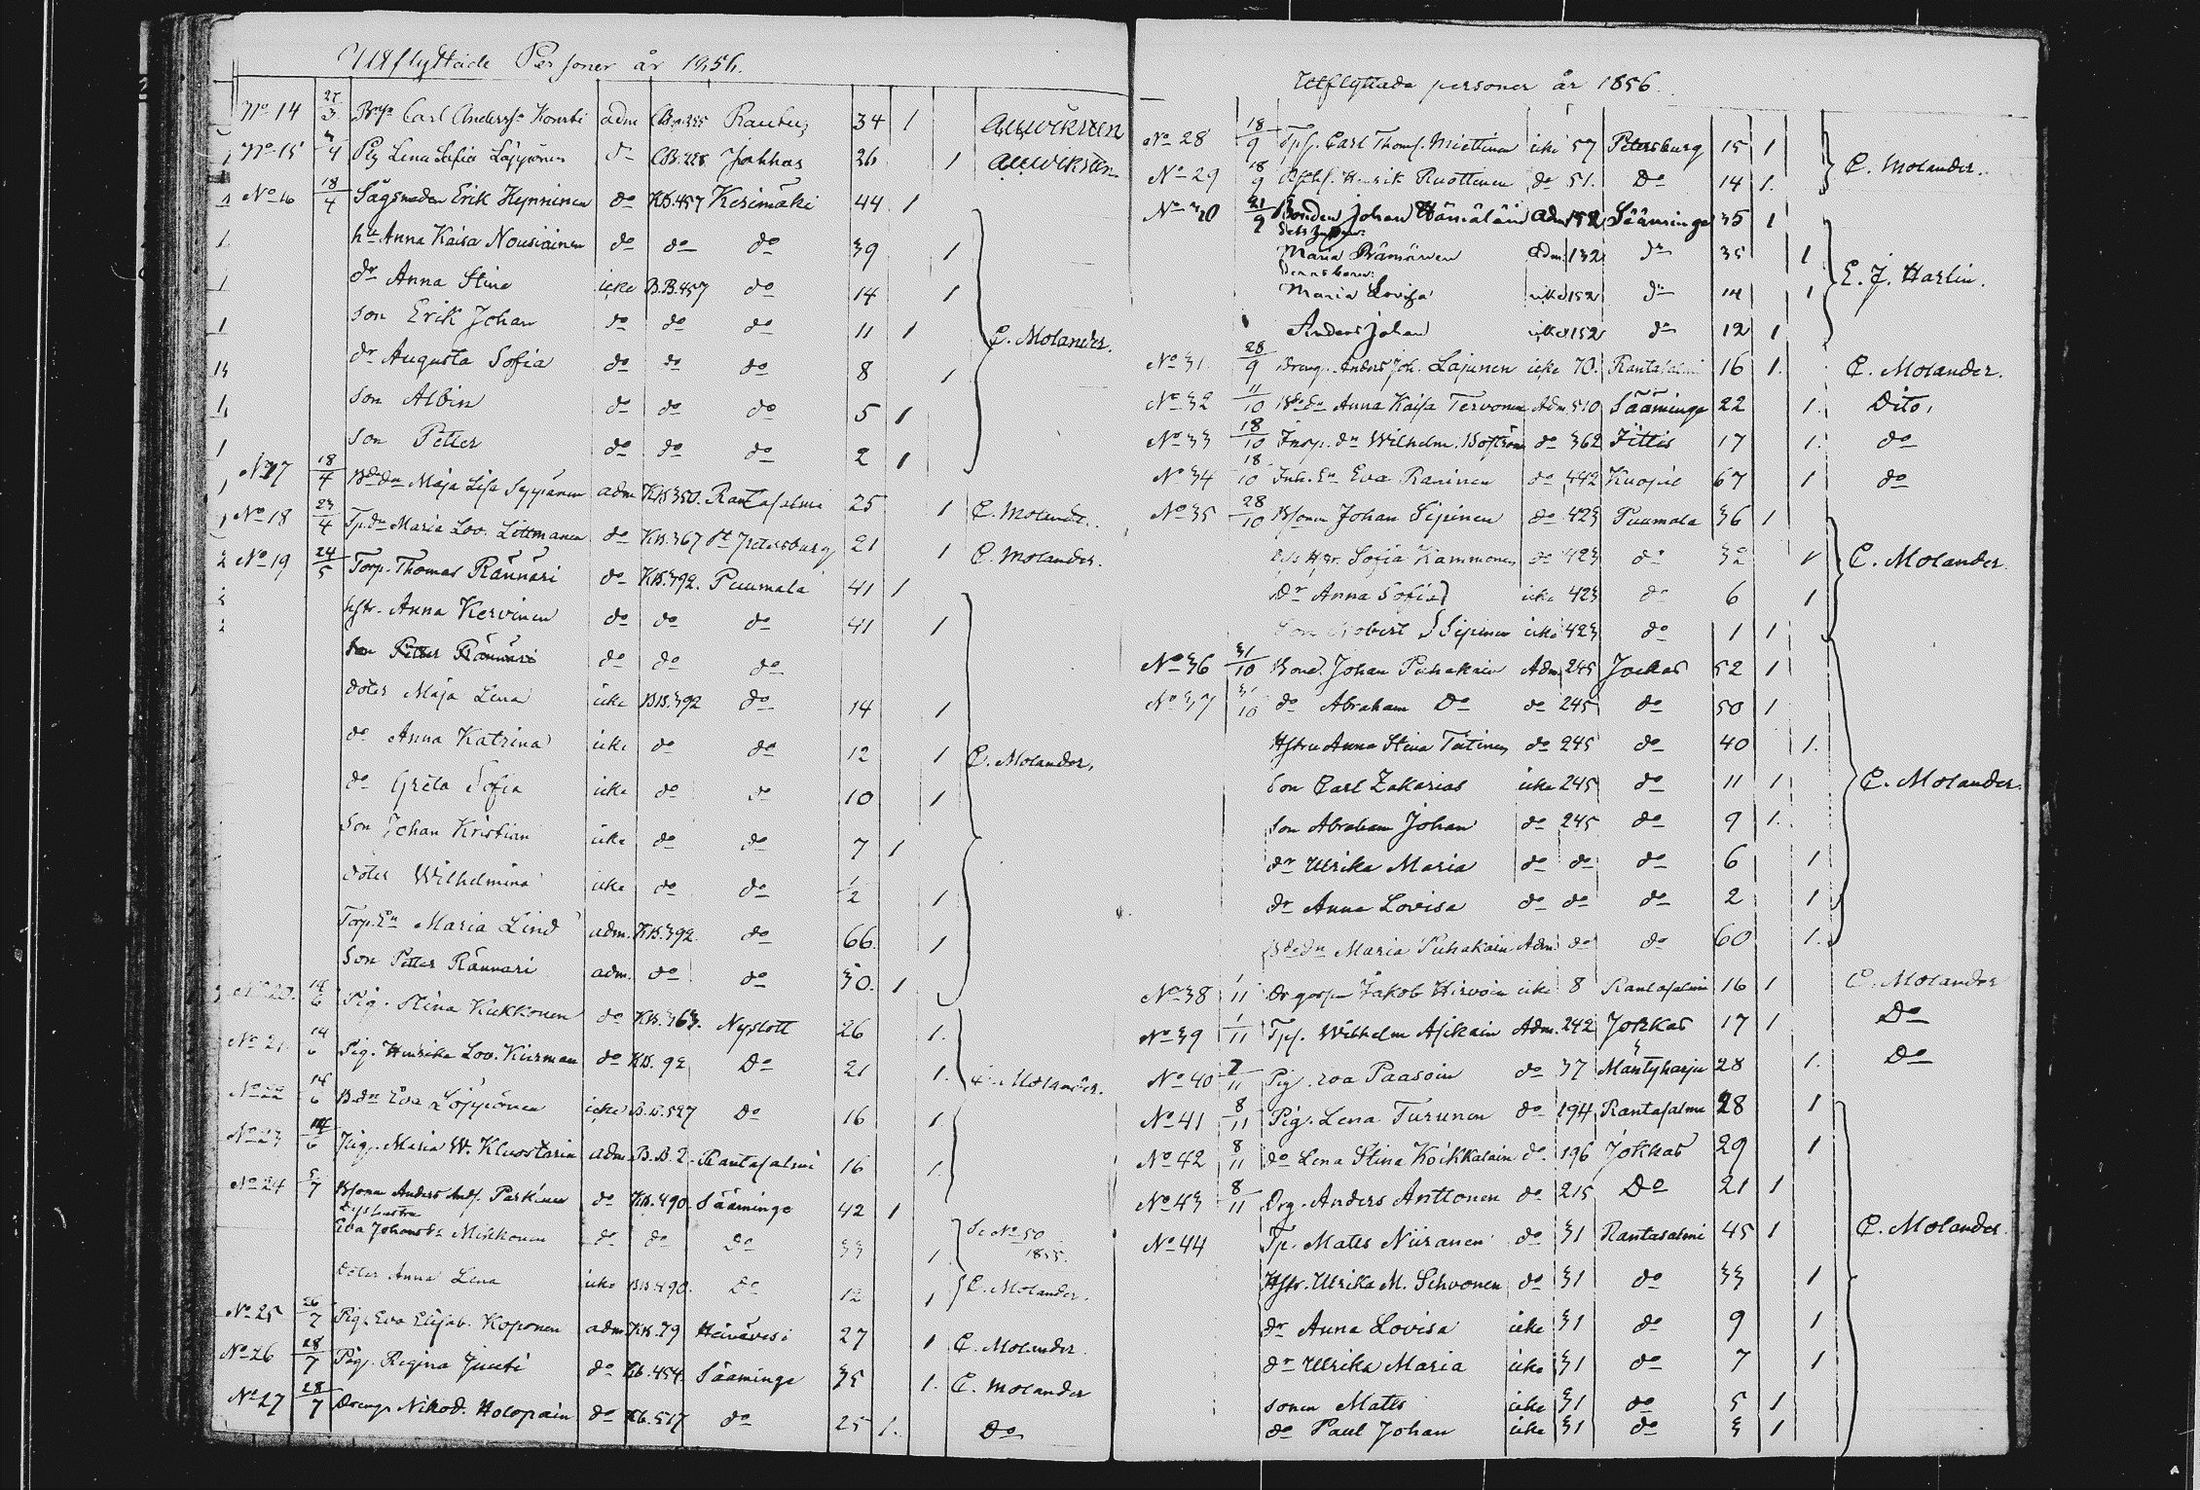 Utflyttade Personer år 1856.
No 14 27/3 Carl Anderss. adm 355 34 1 A.W. Wikstén
No 15 4/4 Pig Lena Sofia Löppönen do 228 Jokkas 26 1 A.W. Wikstén
No 16 18/4 Sågsmeden Erik Hynninen do KB.457 Kerimäki 44 1
1 hu Anna Kaisa Nousiainen do do do 39 1
1 dr Anna Stina icke B.B.457 do 14 1
1 son Erik Johan do do do 11 1 C. Molander.
dr Augusta Sofia do do do 8 1
son Albin do do do 5 1
1 son Petter do do do 2 1
No 17 18/4 Maja Lisa adm KB 350. Rantasalmi 25 1 C. Molander.
No 18 23/4 Maria Lov. Littmanen do KB.367 St Petersburg 21 1 C. Molander.
2 No 19 24/5 Torp. Thomas Rännäri do KB.392. Puumala 41 1
hstr. Anna Kervinen do do do 41 1
Son Petter Rännäri do do do
doter Maja Lena icke BB.392 do 14 1
do Anna Katrina icke do do 12 1 C. Molander.
do Greta Sofia icke do do 10 1
Son Johan Kristian icke do do 7 1
doter Wilhelmina icke do do 1/2 1
Torp.En Maria Lind adm. KB.392. do 66. 1
Son Petter Rännäri adm. do do 30. 1
No 20. 14/6 Pig. Stina Kukkonen do KB.363. Nyslott 26 1.
No 21. 14/6 Pig. Hinrika Lov. do KB. 92 Do 21 1. C. Molander.
No 22 14/6 Eva Löppönen icke B.B.527 Do 16 1
No 23 14/6 Maria W. adm. B.B.2. Rantasalmi 16 1
No 24 5/7 Anders Parkinen do KB.490. Sääminge 42 1
Dess hustru
Eva Johansdr Mikkonen do do Do 33 1 Se No 50 1855.
doter Anna Lena icke BB.490. Do 12 1 C. Molander.
No 25 26/7 Pig. Eva Elisab. Koponen adm. KB.79 Heinävesi 27 1 C. Molander.
No 26 28/7 Pig. Regina Juuti do Kb.454. Sääminge 35 1. C. Molander
No 27 28/7 Dreng Nikod. Holopain do Kb.517 do 25 1. Do
Utflyttade personer år 1856.
No 28 18/9 Carl Thoms. Miettinen icke 57 Petersburg 15 1 C. Molander.
No 29 18/9 Ruottinen do 51. Do 14 1.
No 30 21/9 Bonden Johan Hämäläin Adm 152 Sääminge 35 1
Maria Adm 152 do 35 1
Dennas barn:
Maria Lovisa icke 152 do 14 1 E. J. Harlin.
Anders Johan icke 152 do 12 1
No 31. 28/9 Dreng. Anders Joh. Lajunen icke 70. Rantasalmi 16 1. C. Molander.
No 32 11/10 Anna Kaisa Tervonen Adm. 510 Sääminge 22 1. Dito.
No 33 18/10 Wilhelm. Boström do 362 Jittis 17 1. do
No 34 18/10 Inh. En Eva Raninen do 442 Kuopio 67 1 do
No 35 28/10 Johan Sipinen do 423 Puumala 36 1
Sofia Kammonen do 423 do 32 1 C. Molander.
Dr Anna Sofia icke 423 do 6 1
Son Robert Sipinen icke 423 do 1 1
No 36 31/10 Bond. Johan Puhakain Adm. 245 Jockas 52 1
No 37 31/10 do Abraham Do do 245 do 50 1
Hstru Anna Stina do 245 do 40 1.
Son Carl Zakarias icke 245 do 11 1 C. Molander.
Son Abraham Johan do 245 do 9 1.
dr Ulrika Maria do do do 6 1
dr Anna Lovisa do do do 2 1
Maria Puhakain Adm do do 60 1.
No 38 1/11 Jakob Hirvoin icke 8 Rantasalmi 16 1 C. Molander
No 39 1/11 Wilhelm Asikain Adm. 242 Jokkas 17 1 Do
No 40 7/11 Pig. Eva Paasoin do 37 Mäntyharju 28 1. Do
No 41 8/11 Pig. Lena Turunen do 194 Rantasalmi 28 1
No 42 8/11 do Lena Stina Koikkalain do. 196 Jokkas 29 1
No 43 8/11 Drg. Anders Anttonen do 215 Do 21 1
No 44 Tp. Matts Niiranen do 31 Rantasalmi 45 1 C. Molander.
Hstr. Ulrika M. Sihvonen do 31 do 33 1
dr Anna Lovisa icke 31 do 9 1
dr Ulrika Maria icke 31 do 7 1
sonen Matts icke 31 do 5 1
do Paul Johan icke 31 do 3 1